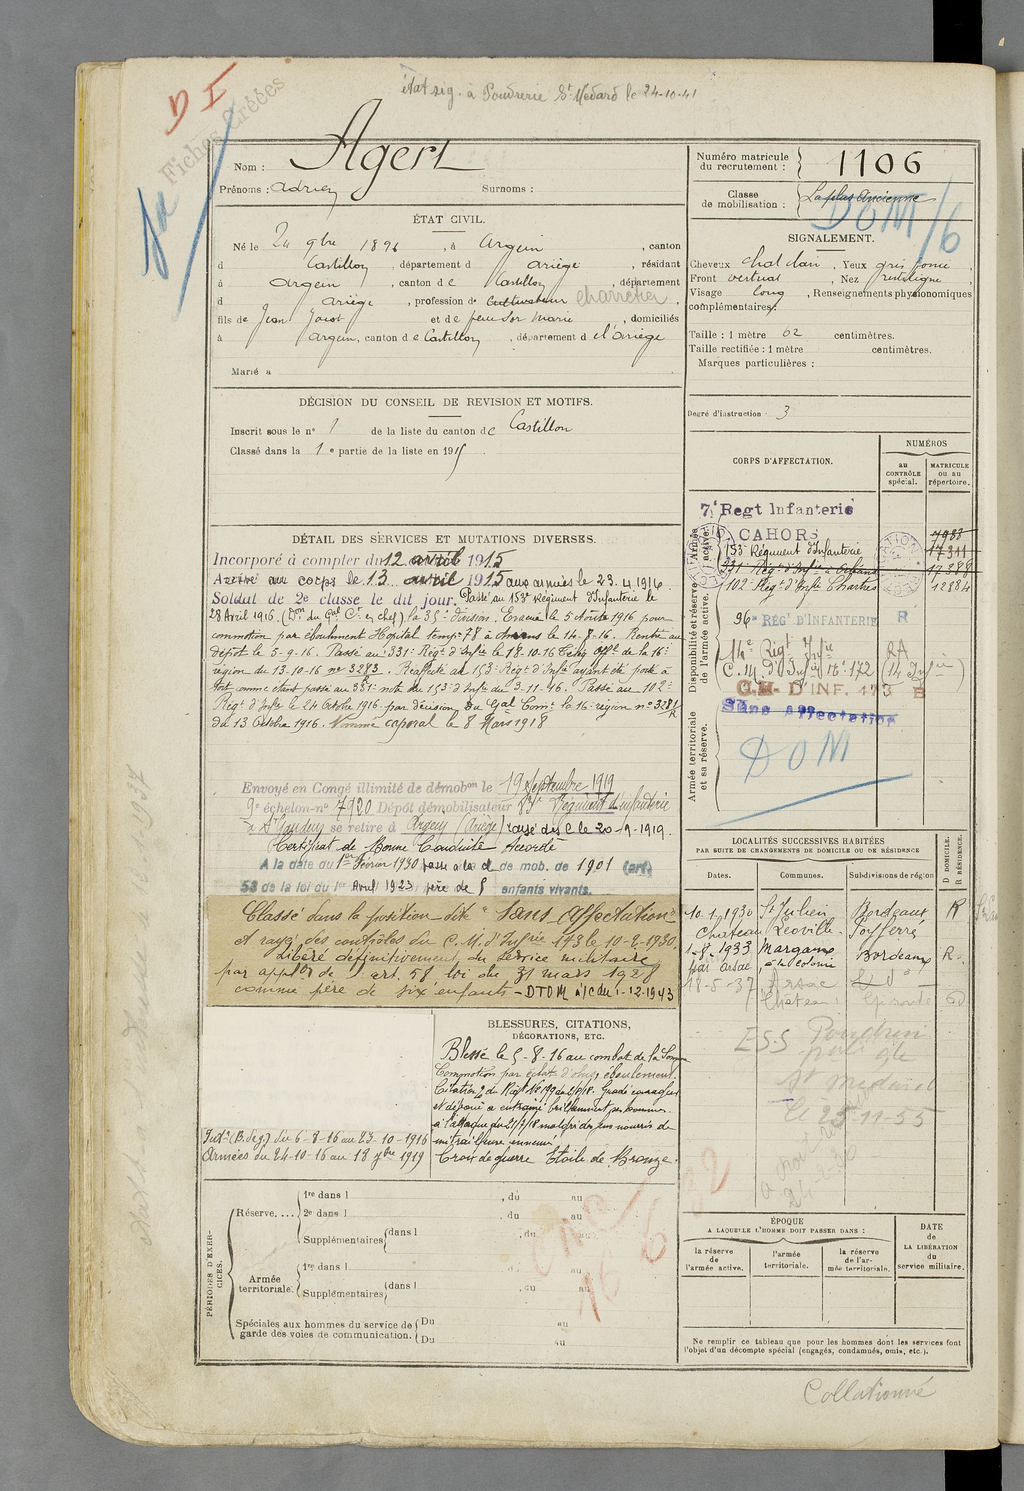 état sig. à Poudrerie St Médard le 24-10-41
D I
Fiches Créées
Nom : Agert
Prénoms : Adrien Surnoms :
ÉTAT CIVIL.
Né le 24 9bre 1896, à Argein, canton
d Castillon, département d Ariège, résidant
à Argein, canton de Castillon, département
d Ariège, profession de Cultivateur Charretier,
fils de Jean Joust et de feue Sor Marie, domiciliés
à Argein, canton de Castillon, département de l'Ariège
Marié à
DÉCISION DU CONSEIL DE REVISION ET MOTIFS.
Inscrit sous le n° 1 de la liste du canton de Castillon
Classé dans la 1e partie de la liste en 1915
DÉTAIL DES SERVICES ET MUTATIONS DIVERSES.
Incorporé à compter du 12 avril 1915
Arrivé au corps le 13 avril 1915 aux armées le 23.4.1916
Soldat de 2e classe le dit jour. Passé au 153e Régiment d'Infanterie le
28 Avril 1916. (Don du Gal Ct en chef) la 39e division. Evacué le 5 Août 1916 pour
commotion par éboulement Hôpital temp. 78 à Amiens le 14-8-16. Rentré au
dépôt le 5-9-16. Passé au 331e Régt d'Infie le 13.10.16
région du 13-10-16 n° 3283. Réaffecté au 153e Régt d'Infie ayant été porté à
tort comme étant passé au 331e note du 153e d'Infie du 3-11-46. Passé au 102e
Régt d'Infie le 24 Octobre 1916 par décision du Gal Comt la 16e région n° 3281/R
du 13 Octobre 1916. Nommé caporal le 8 Mars 1918
Envoyé en Congé illimité de démobon le 19 Septembre 1919
9e échelon-n° 7920 Dépôt démobilisateur 83e Régiment d'infanterie
à St Gaudens se retire à Argein (Ariège) passé dis. C le 20-9-1919.
Certificat de Bonne Conduite Accordé
A la date du 1er Février 1930 passe à la cl. de mob. de 1901 (art.
58 de la loi du 1er Avril 1923 père de 5 enfants vivants.
Classé dans la position dite "Sans Affectation"
et rayé des contrôles du C.M. d'Infrie 173 le 10-2-1930.
Libéré définitivement du service militaire
par appon de l'art. 58 loi du 31 mars 1928
comme père de six enfants - DTOM à/c du 1-12-1943
BLESSURES, CITATIONS,
DÉCORATIONS, ETC.
Blessé le 5-8-16 au combat de la Somme
Commotion par éclat d'obus, éboulement.
Citation du Régt N° 199 du
et dévoué a entraîné brillamment ses hommes
à l'attaque du 21/7/18 malgré des feux nourris de
mitrailleuse ennemie
Croix de guerre Étoile de Bronze.
Intr (B. deg) du 6-8-16 au 23-10-1916
Armées du 24-10-16 au 18 9bre 1919
PÉRIODES D'EXERCICES.
Réserve.... 1re dans l , du au
2e dans l , du au
Supplémentaires dans l , du au
Armée territoriale. 1re dans l , du au
Supplémentaires dans l , du au
Spéciales aux hommes du service de garde des voies de communication. Du au
Du au
Numéro matricule du recrutement : 1106
Classe de mobilisation : La plus Ancienne
DOM/6
SIGNALEMENT.
Cheveux chat clair, Yeux gris foncé,
Front vertical, Nez rectiligne,
Visage long, Renseignements physionomiques
complémentaires.
Taille : 1 mètre 62 centimètres.
Taille rectifiée : 1 mètre centimètres.
Marques particulières :
Degré d'instruction 3
CORPS D'AFFECTATION.
NUMÉROS
au CONTRÔLE spécial.
MATRICULE ou au répertoire.
Armée active.
7e Regt Infanterie
CAHORS 7983
153e Régiment d'Infanterie 17311
331 Régt d'Infie à Orléans 17388
102e Régt d'Infie Chartres 12884
Disponibilité et réserve de l'armée active.
96e RÉG' D'INFANTERIE R
14e Régt Infie RA
C.M. d'Infie N° 172 (14 Infie)
C.M. D'INF. 173 B
Sans Affectation
Armée territoriale et sa réserve.
DOM
LOCALITÉS SUCCESSIVES HABITÉES
PAR SUITE DE CHANGEMENTS DE DOMICILE OU DE RÉSIDENCE
Dates. Communes. Subdivisions de région D DOMICILE. R RÉSIDENCE.
10-1-1930 St Julien Bordeaux R
Château Léoville-Poyferré
1-8-1933 Margaux Bordeaux R
par Arsac, à la Colonie
18-5-37 Arsac
Château Gironde
ESS Poudrerie
St Médard
le 25-11-55
ÉPOQUE
A LAQUELLE L'HOMME DOIT PASSER DANS :
la réserve de l'armée active.
l'armée territoriale.
la réserve de l'armée territoriale.
DATE DE LA LIBÉRATION du service militaire.
Ne remplir ce tableau que pour les hommes dont les services font
l'objet d'un décompte spécial (engagés, condamnés, omis, etc.).
Collationné